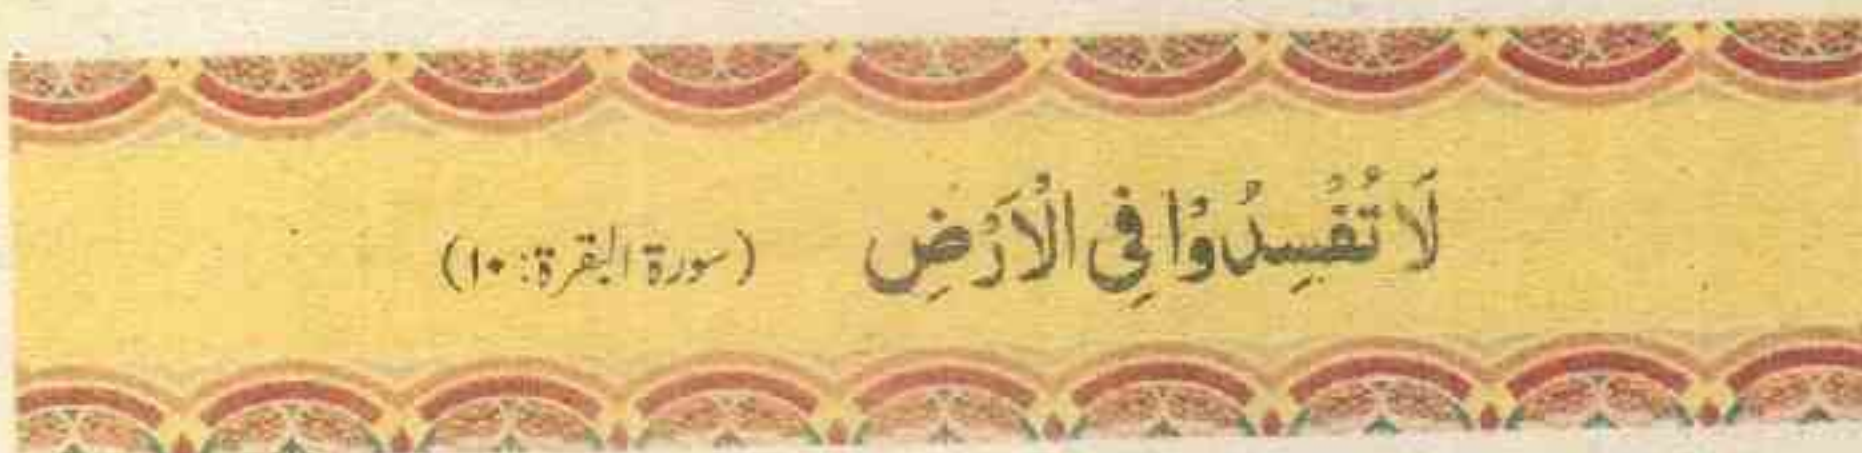 لَا تُفْسِدُوْا فِی الْاَرْضِ (سورة البقرة: ۱۰)